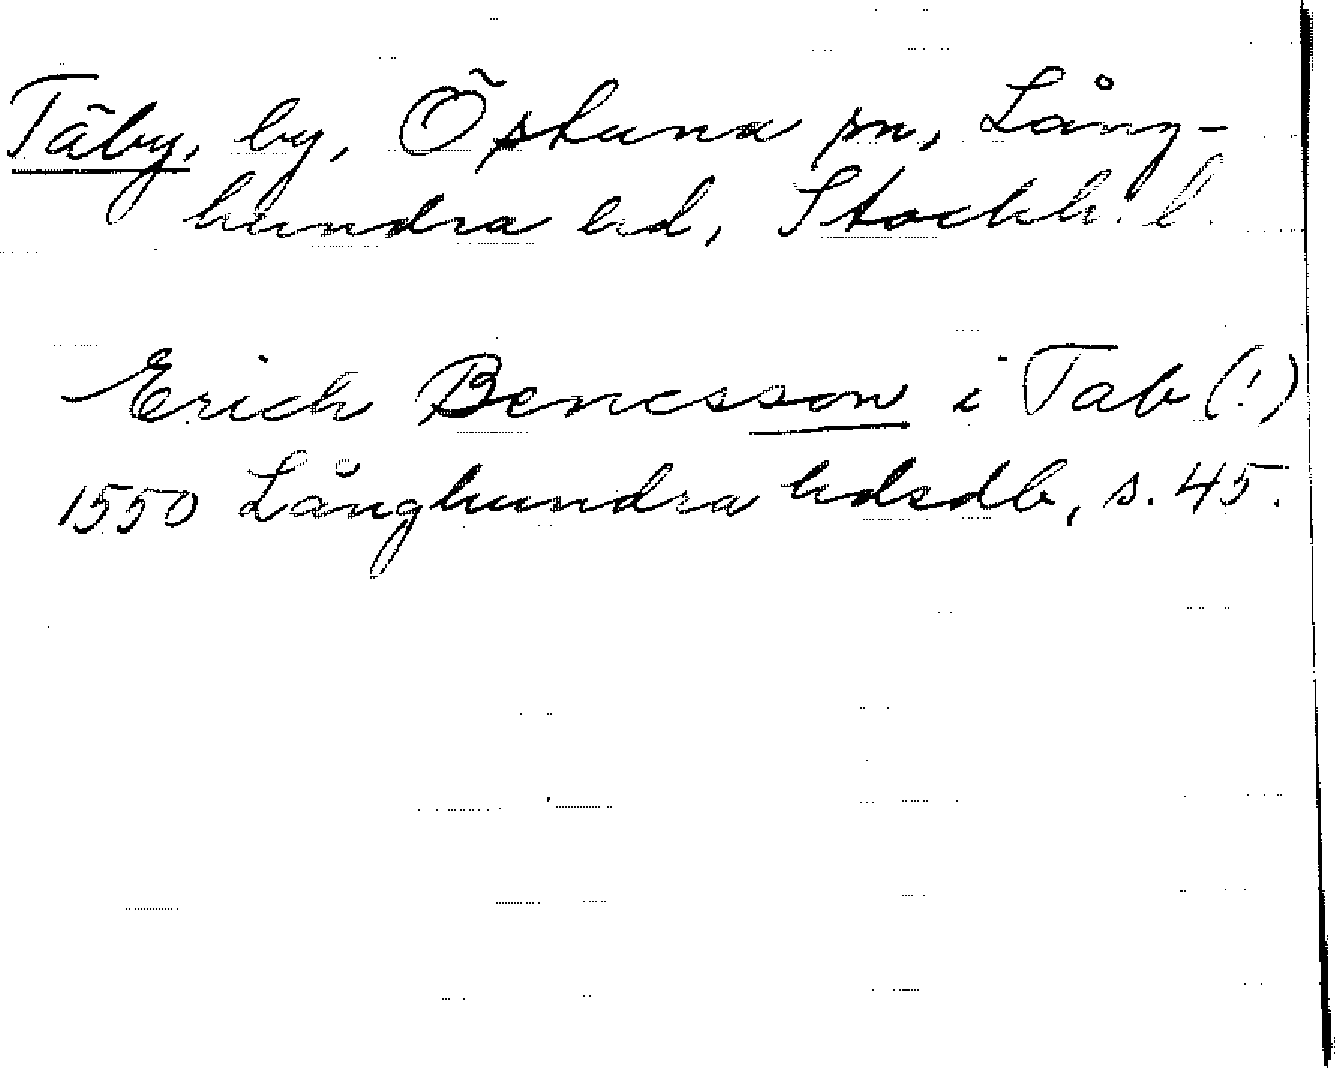 Täby, by, Östuna sn, Lång-
hundra hd, Stockh. l.
Erich Bencsson i Tab (!)
1550 Långhundra hdsdb, s. 45.